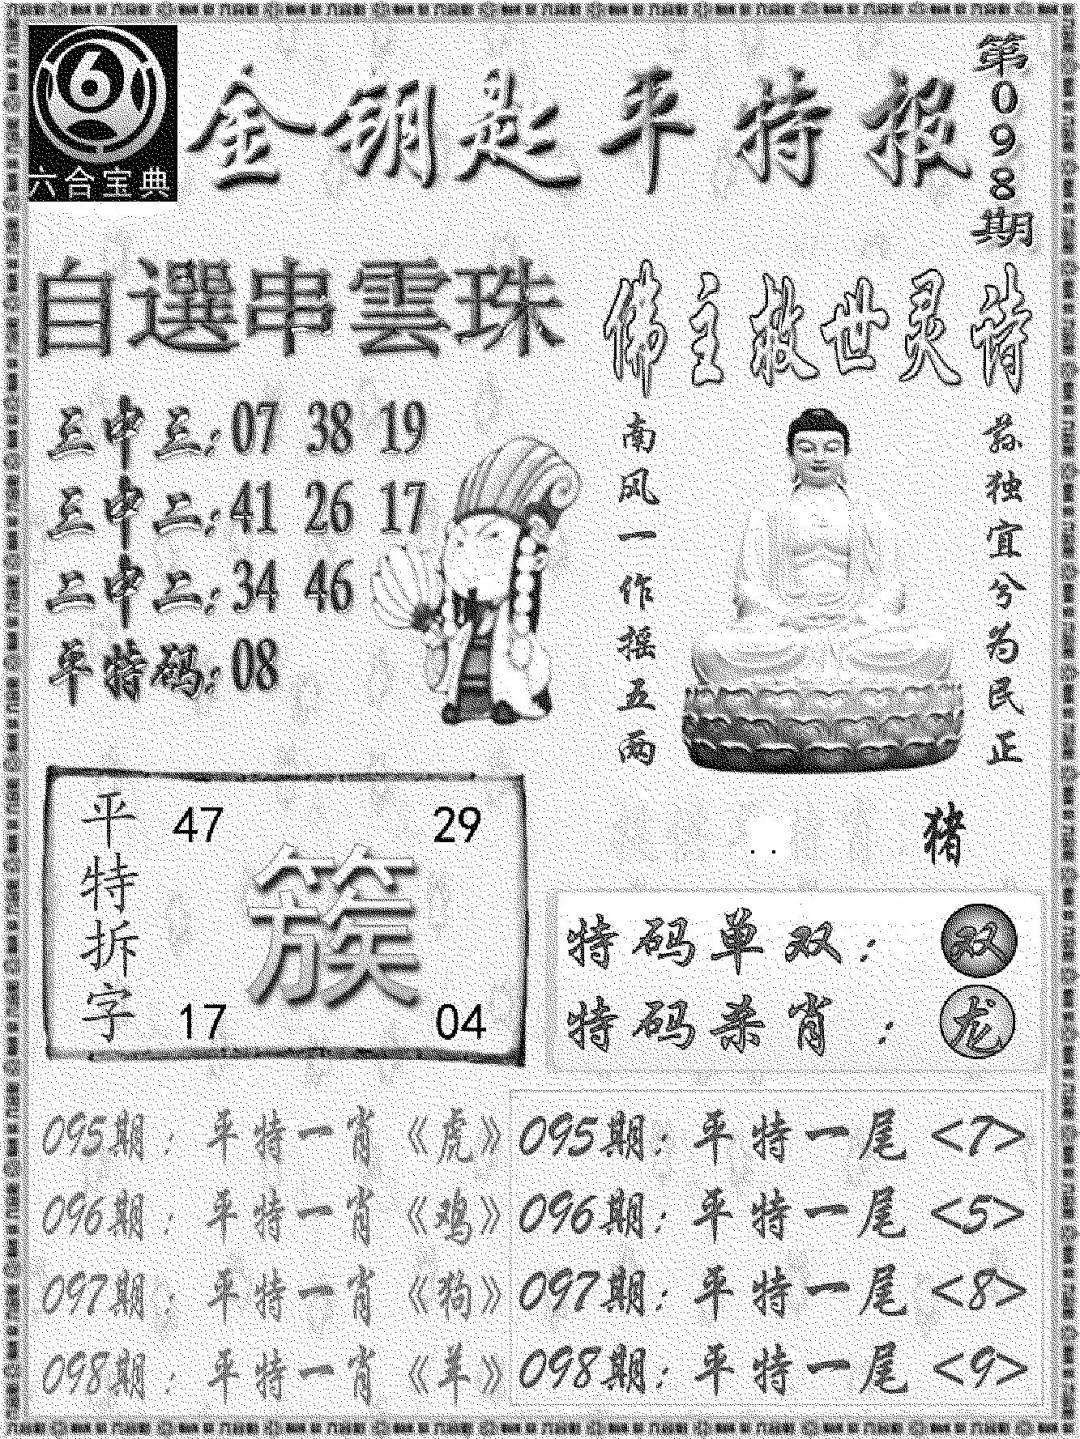 六合宝典
金钥匙平特报
第098期
自選串雲珠
三中三:07 38 19
三中二:41 26 17
二中二:34 46
平特码:08
佛主救世灵诗
南风一作摇五两
荪独宜兮为民正
猪
平特拆字
47 29
簇
17 04
特码单双：双
特码杀肖：龙
095期：平特一肖《虎》
096期：平特一肖《鸡》
097期：平特一肖《狗》
098期：平特一肖《羊》
095期：平特一尾<7>
096期：平特一尾<5>
097期：平特一尾<8>
098期：平特一尾<9>